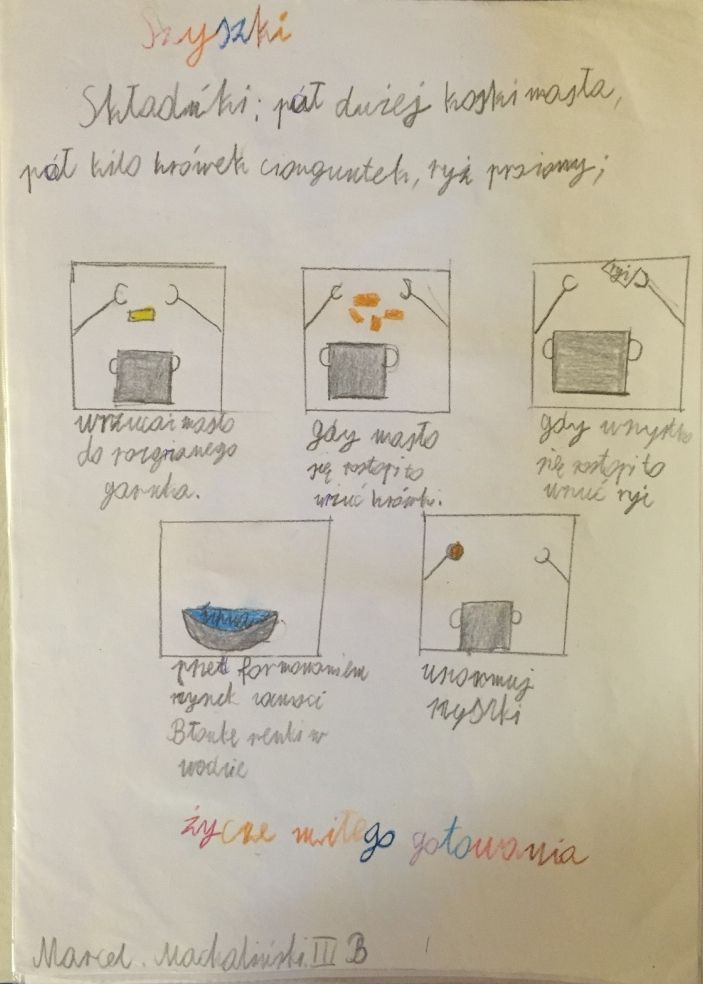 Szyszki
Składniki: pół dużej kostki masła,
pół kilo krówek cionguntek, ryż
ryż
wrzucai masło
do rozgrianego
garnka.
gdy masło
się rostopiło
wrzuć krówki.
gdy wszystko
się rostopiło
wrzuć ryż
przed formowaniem
szyszek zamoci
renki w
wodzie
szyszki
życze miłego gotowania
Marcel. III B